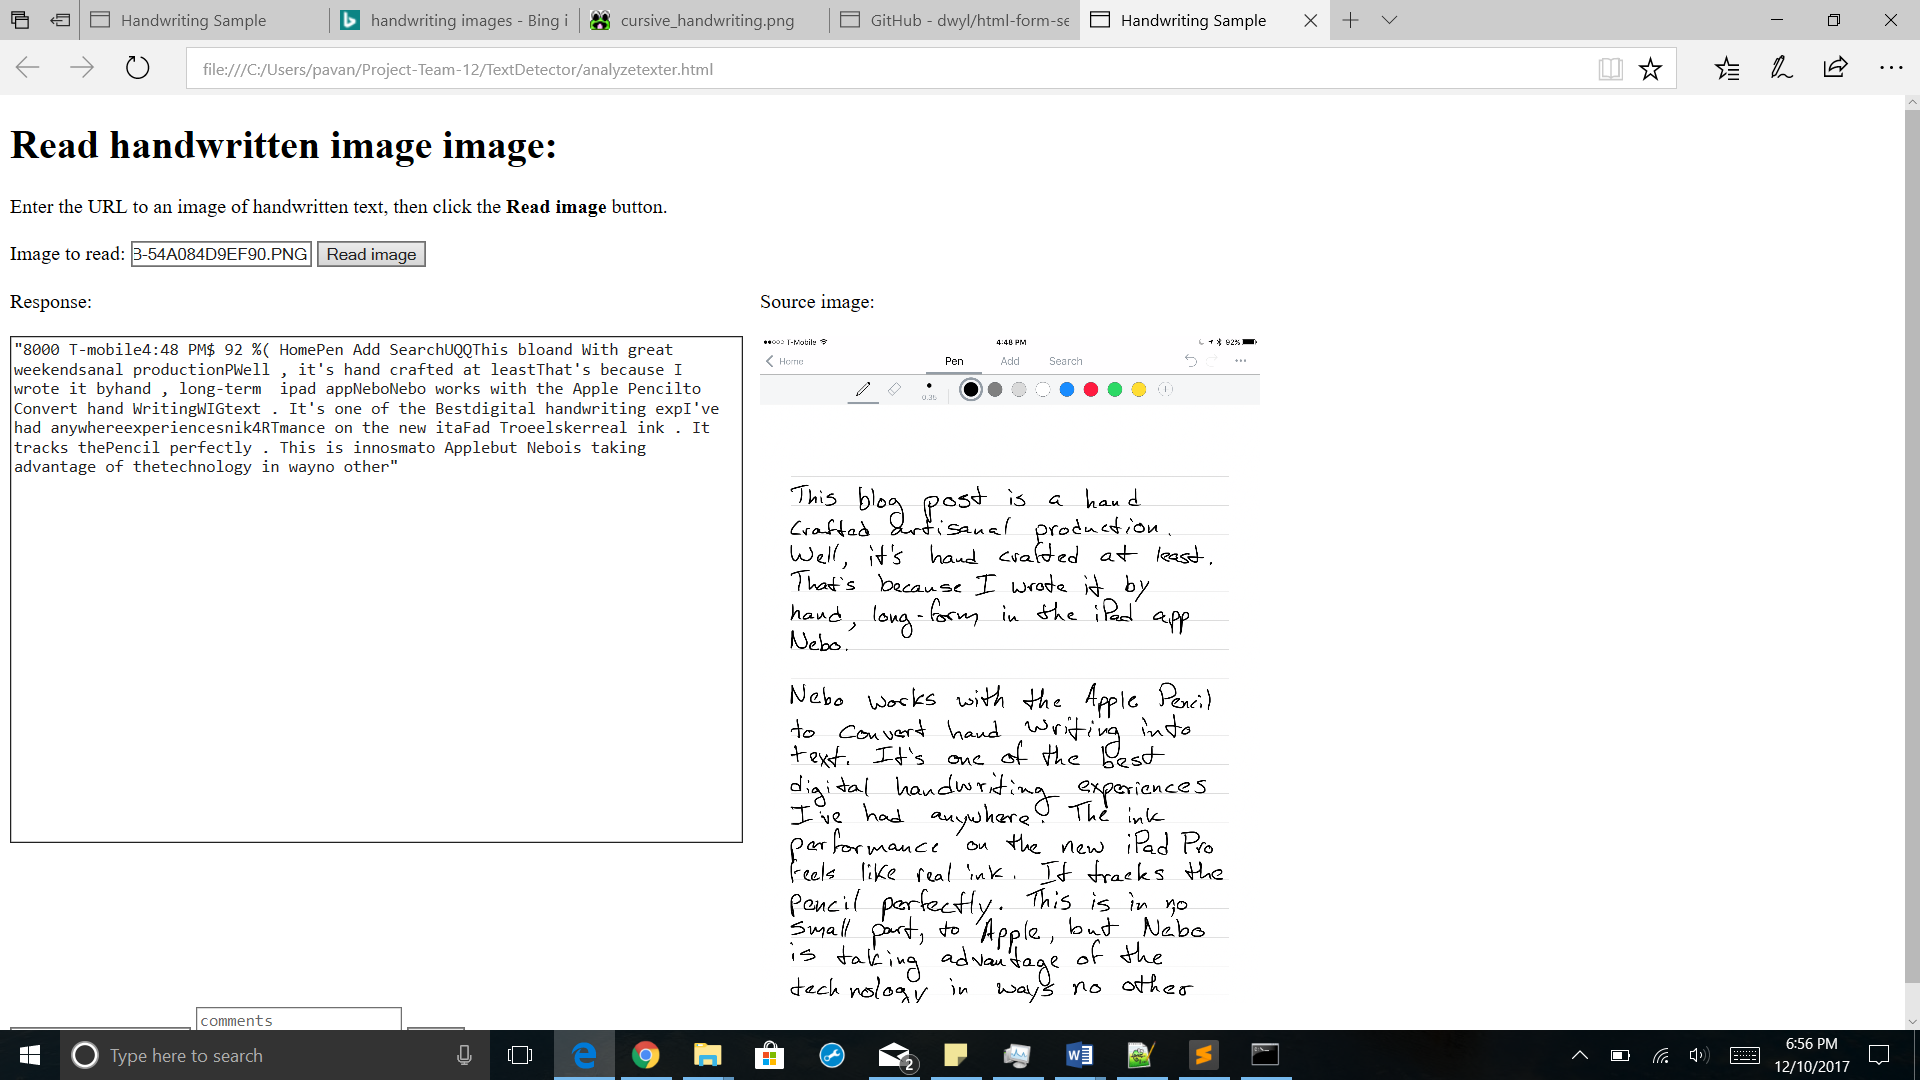 Handwriting Sample
handwriting images - Bing i
cursive_handwriting.png
GitHub - dwyl/html-form-se
Handwriting Sample
file:///C:/Users/pavan/Project-Team-12/TextDetector/analyzetexter.html
Read handwritten image image:
Enter the URL to an image of handwritten text, then click the Read image button.
Image to read: 3-54A084D9EF90.PNG Read image
Response:
"8000 T-mobile4:48 PM$ 92 %( HomePen Add SearchUQQThis bloand With great
weekendsanal productionPWell , it's hand crafted at leastThat's because I
wrote it byhand , long-term  ipad appNeboNebo works with the Apple Pencilto
Convert hand WritingWIGtext . It's one of the Bestdigital handwriting expI've
had anywhereexperiencesnik4RTmance on the new itaFad Troeelskerreal ink . It
tracks thePencil perfectly . This is innosmato Applebut Nebois taking
advantage of thetechnology in wayno other"
comments
Source image:
T-Mobile 4:48 PM 92%
Home Pen Add Search
0.35
This blog post is a hand
crafted artisanal production.
Well, it's hand crafted at least.
That's because I wrote it by
hand, long-form in the iPad app
Nebo.
Nebo works with the Apple Pencil
to convert hand writing into
text. It's one of the best
digital handwriting experiences
I've had anywhere. The ink
performance on the new iPad Pro
feels like real ink. It tracks the
pencil perfectly. This is in no
small part, to Apple, but Nebo
is taking advantage of the
technology in ways no other
Type here to search
2
6:56 PM
12/10/2017